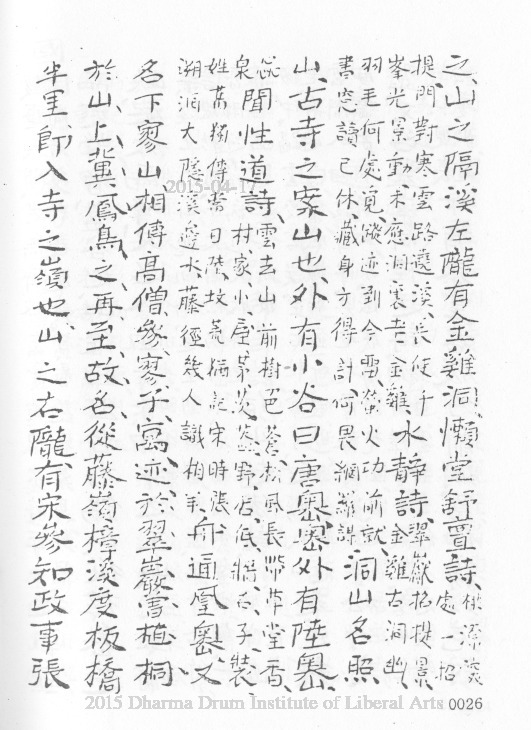 之、山之隔溪左隴有金雞洞、懶堂舒亶詩、桃源深處一招
提門對寒雲路遶溪長使千峯光景動未應洞裏老金雞水靜詩翠巖招提景金雞古洞幽
羽毛何處覓蹤迹到今留螢火功前就書窓讀已休藏身方得計何畏網羅謀洞山名照
山、古寺之案山也、外有小谷曰唐奧、奧外有陸奧、
泉聞性道詩、雲去山前樹色蒼松風長帶草堂香、村家小屋茅茨盖野店低牆石子裝、
姓舊獨傳當日陸坟荒猶記宋時張溯洞大隱溪邊水藤徑幾人識相羊舟通凰奧、又
名下寥山相傳高僧參寥子寓迹於翠巖嘗植桐
於山上、冀鳳鳥之再至、故名、從藤嶺樟淡度板橋
半里師入寺之嶺也、山之右隴有宋參知政事張
2015-04-17
2015 Dharma Drum Institute of Liberal Arts 0026